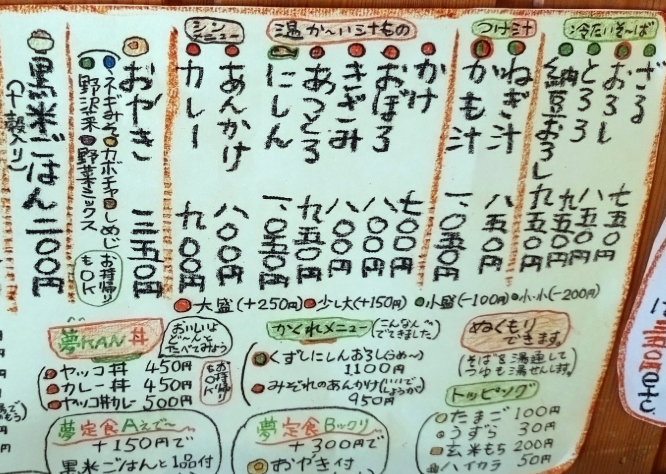 冷たいそ〜ば
ざる 七五〇円
おろし 八五〇円
とろろ 九五〇円
納豆おろし 九五〇円
つけ汁
ねぎ汁 八五〇円
かも汁 一、〇五〇円
温か〜い汁もの
かけ 七〇〇円
おぼろ 八〇〇円
きざみ 八〇〇円
あつとろ 九五〇円
にしん 一、〇五〇円
シン
メニュー
あんかけ 八〇〇円
カレー 九〇〇円
おやき 三五〇円
ネギみそ カボチャ しめじ
野沢菜 野菜ミックス
お持帰り
もOK
黒米ごはん 二〇〇円
(十穀入り)
大盛(+250円) 少し大(+150円) 小盛(-100円) 小・小(-200円)
夢KAN丼
おいしいよ
ど〜んと
たべてみよう
ヤッコ丼 450円
カレー丼 450円
ヤッコ丼カレー 500円
お持帰り
もOK
かくれメニュー
(こんなん
できました)
くずしにしんおろし(らめ〜)
1100円
みぞれのあんかけ
950円
ぬくもり
できます。
(そばを湯通して
つゆも湯せんします。)
トッピング
たまご 100円
うずら 30円
玄米もち 200円
ハイカラ 50円
夢定食Aえで〜
+150円で
黒米ごはんと1品付
夢定食Bックリ
+300円で
おやき付